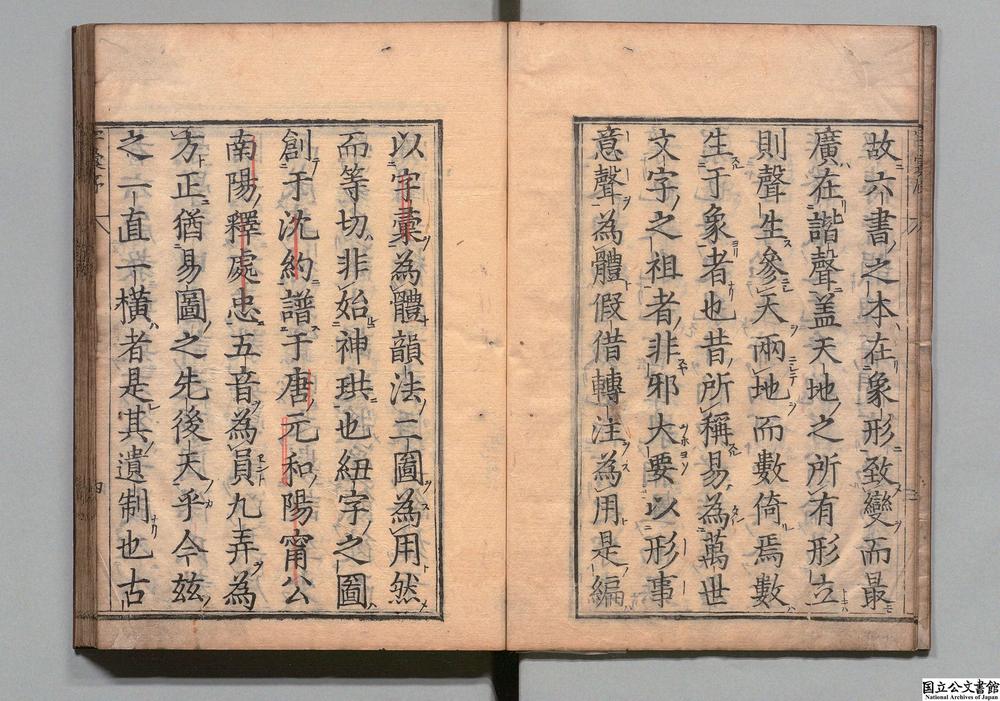 故六書之本在象形致變而最
廣在諧聲盖天地之所有形立
則聲生參天兩地而數倚焉數
生于象者也昔所稱易為萬世
文字之祖者非邪大要以形事
意聲為體假借轉注為用是編
以字彙為體韻法二圖為用然
而等切非始神珙也紐字之圖
創于沈約譜于唐元和陽甯公
南陽釋處忠五音為員九弄為
方正猶易圖之先後天乎今茲
之一直一橫者是其遺制也古
四
国立公文書館
National Archives of Japan